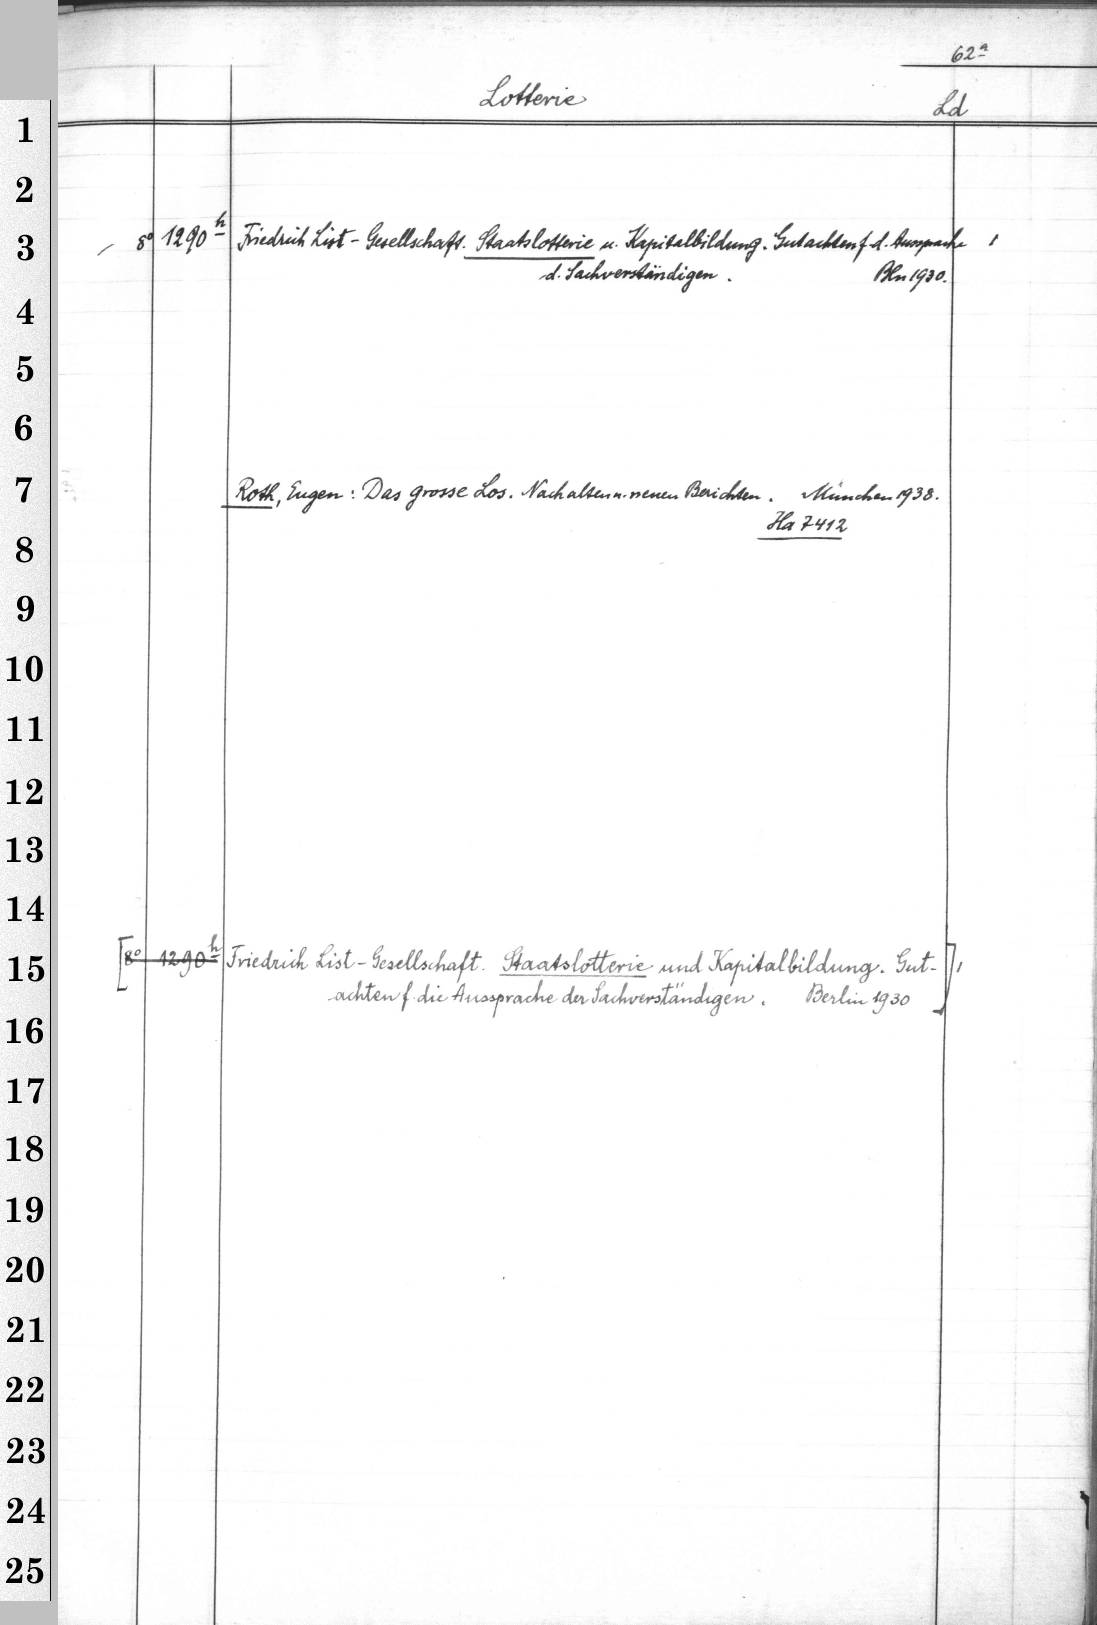 62a
Lotterie
Ld
1
2
3 8° 1290h Friedrich List-Gesellschaft. Staatslotterie u. Kapitalbildung. Gutachten f. d. Aussprache 1
d. Sachverständigen. Bln 1930.
4
5
6
7 Roth, Eugen: Das grosse Los. Nach alten u. neuen Berichten. München 1938.
Ha 7412
8
9
10
11
12
13
14
15 [8° 1290h Friedrich List-Gesellschaft. Staatslotterie und Kapitalbildung. Gut- 1
achten f. die Aussprache der Sachverständigen. Berlin 1930]
16
17
18
19
20
21
22
23
24
25